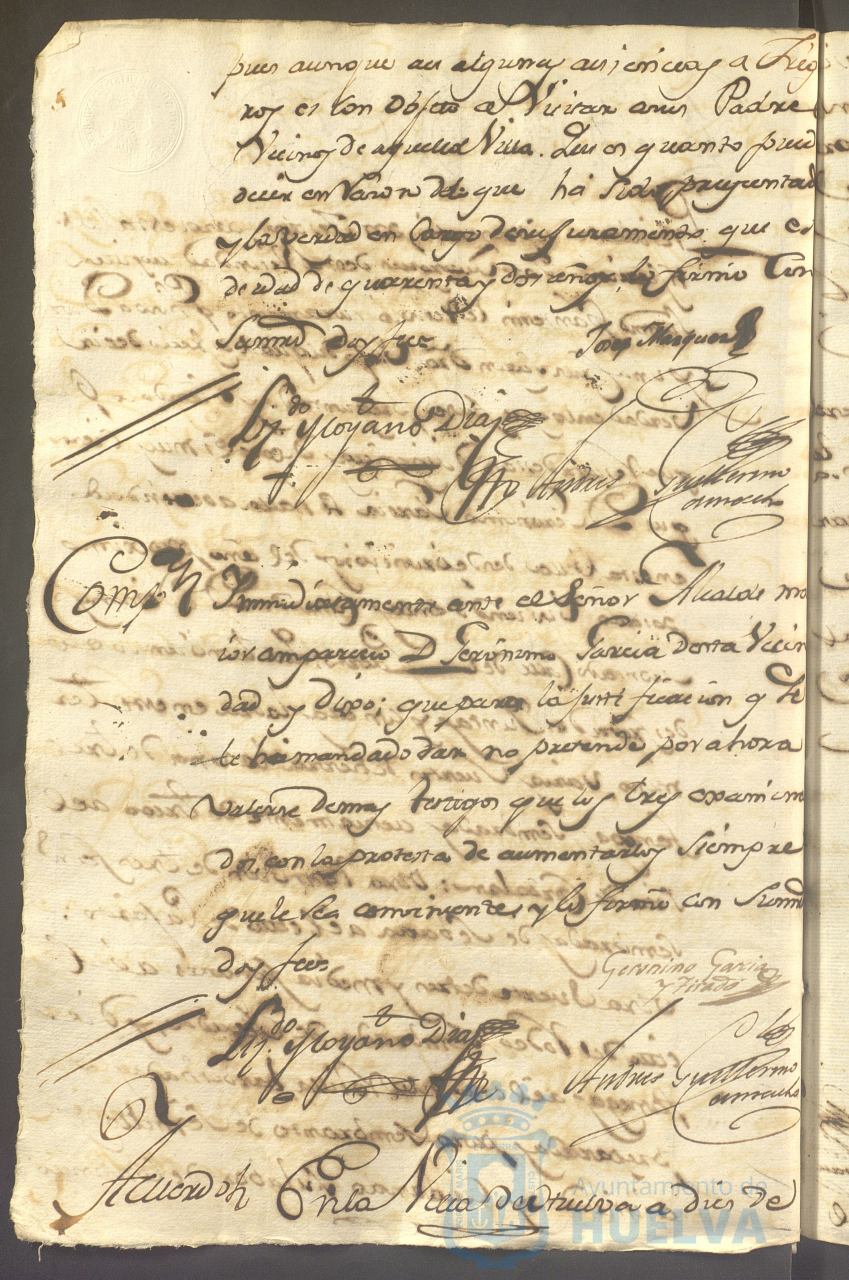 pues aunque aci algunas ausiencias a Trig
ros es con obgeto a Vicitar a sus Padre
Vicinos de aquella Villa. Que es quanto pued
decir en Razon de lo que ha sido preguntad
y la verdad en Cargo de su Juramento que es
de edad de quarenta y dos años, lo firmó Con
Su md doy fee
Josep Marquez
Liz.do Moyano Diaz
Andres Guillermo
Camacho
Comp.n Ynmediatamente ante el Señor Alcalde ma
ior comparecio D Gerónimo Garcia desta Vecin
dad y Dixo; que para la justificacion q Se
le ha mandado dar no pretende por ahora
valerse de mas testigos que los tres examina
dos con la protesta de aumentarlos siempre
que le sea conviniente, y lo firmó con Su md
doy fee
Geronino Garcia
y Tirado
Liz.do Moyano Diaz
Andres Guillermo
Camacho
Acuerdo En la Villa de Huelva a dies de
Ayuntamiento de
HUELVA